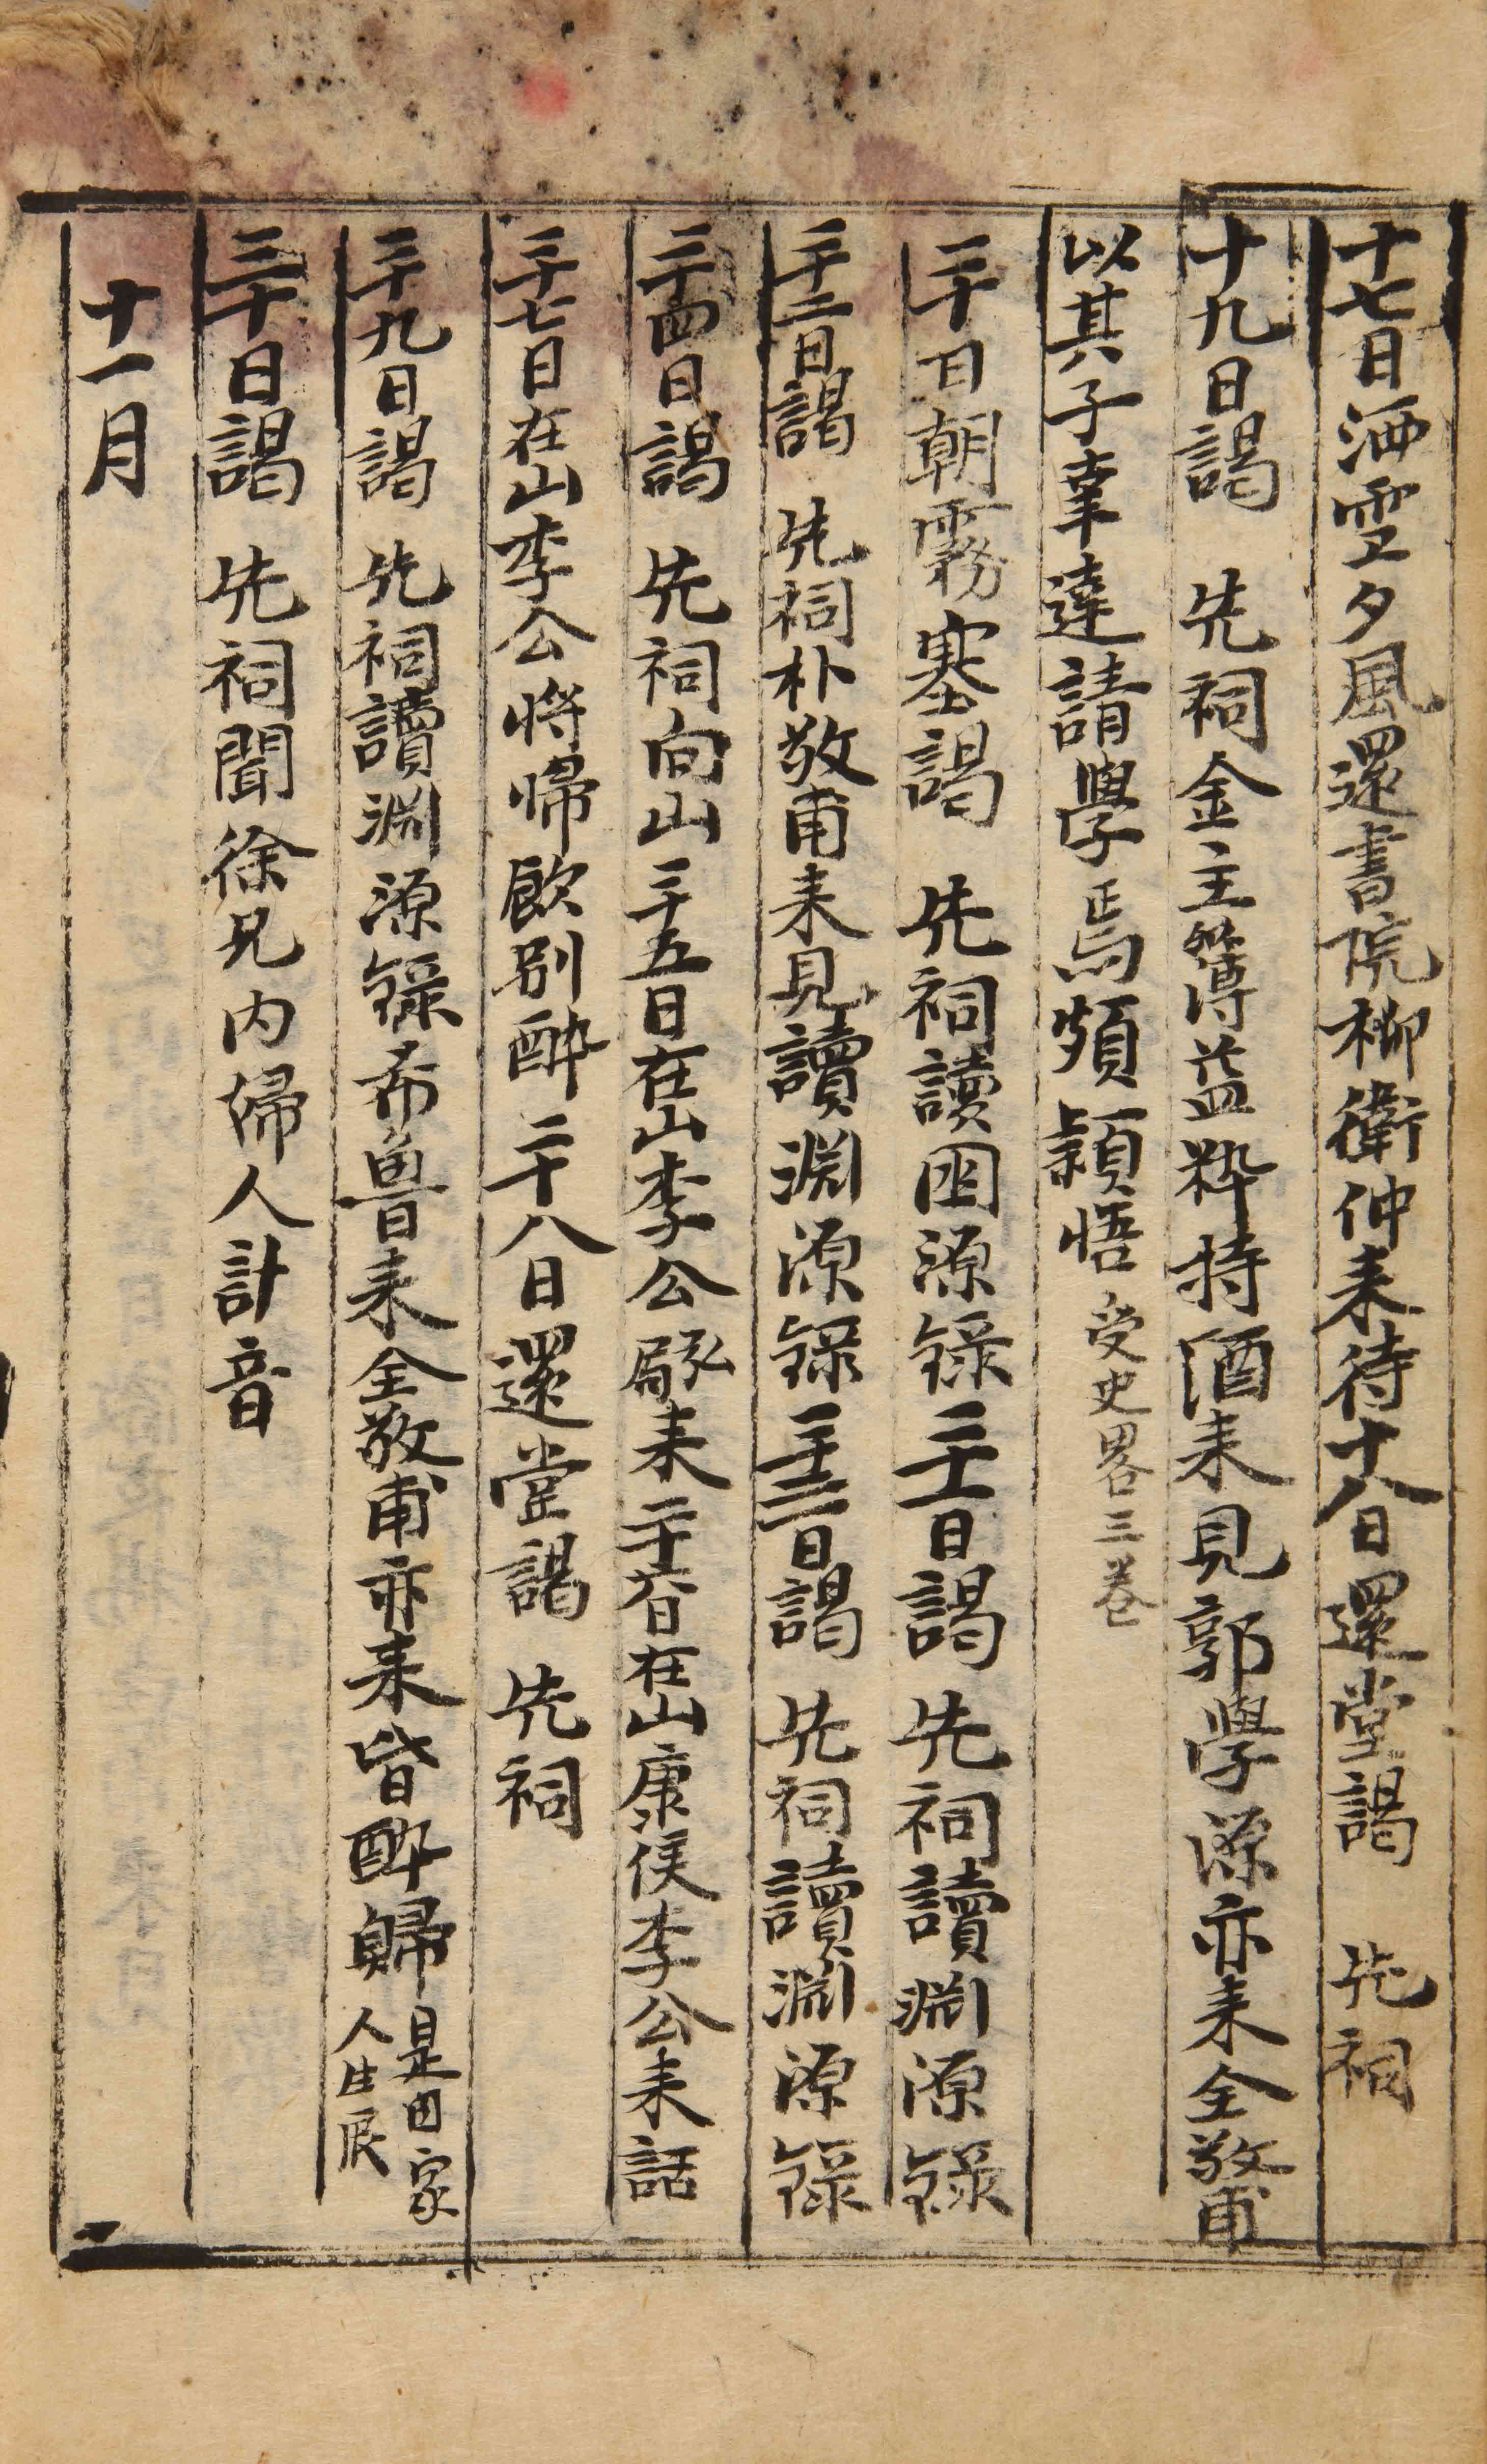 十七日洒雪夕風還書院柳衛仲来待十八日還堂謁 先祠
十九日謁 先祠金主簿益粹持酒来見郭學源亦来全敬甫
以其子達請學焉頗穎悟受史畧三卷
二十日朝霧塞謁 先祠讀困源錄二十一日謁 先祠讀淵源錄
二十二日謁 先祠朴敬甫来見讀淵源錄二十三日謁 先祠讀淵源錄
二十四日謁 先祠向山二十五日在山李公来二十六日在山康侯李公来話
二十七日在山李公將帰飮別醉二十八日還堂謁 先祠
二十九日謁 先祠讀淵源錄希魯来全敬甫亦来皆醉歸是日家人生辰
三十日謁 先祠聞徐兄内帰人計音
十一月